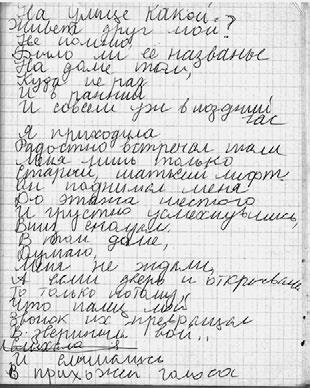 На улице какой
Живёт друг мой?
Не помню,
Было ли ее названье
На доме том,
Куда не раз
И в ранний
И совсем уж в поздний
час
Я приходила
Радостно встречал там
Меня лишь только
Старый, шаткий лифт.
Он поднимал меня
До этажа шестого
И грустно усмехнувшись,
Вниз
В том доме,
Думаю,
Меня не ждали,
А если дверь и открывали
То только потому,
Что палец мой
Звонок их превращал
В звериный вой..
я
И
В прихожей голоса